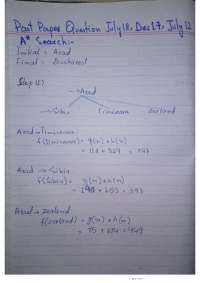 Past Paper Question July 18, Dec 17, July 12
A* Search:-
Initial = Arad
Final = Bucharest
Step (1)
Arad
Sibiu Timisoara Zerland
Arad → Timisoara
f(Timisoara) = g(n) + h(n)
= 118 + 329 = 447
Arad → Sibiu
f(Sibiu) = g(n) + h(n)
= 140 + 253 = 393
Arad → Zerland
f(Zerland) = g(n) + h(n)
= 75 + 374 = 449